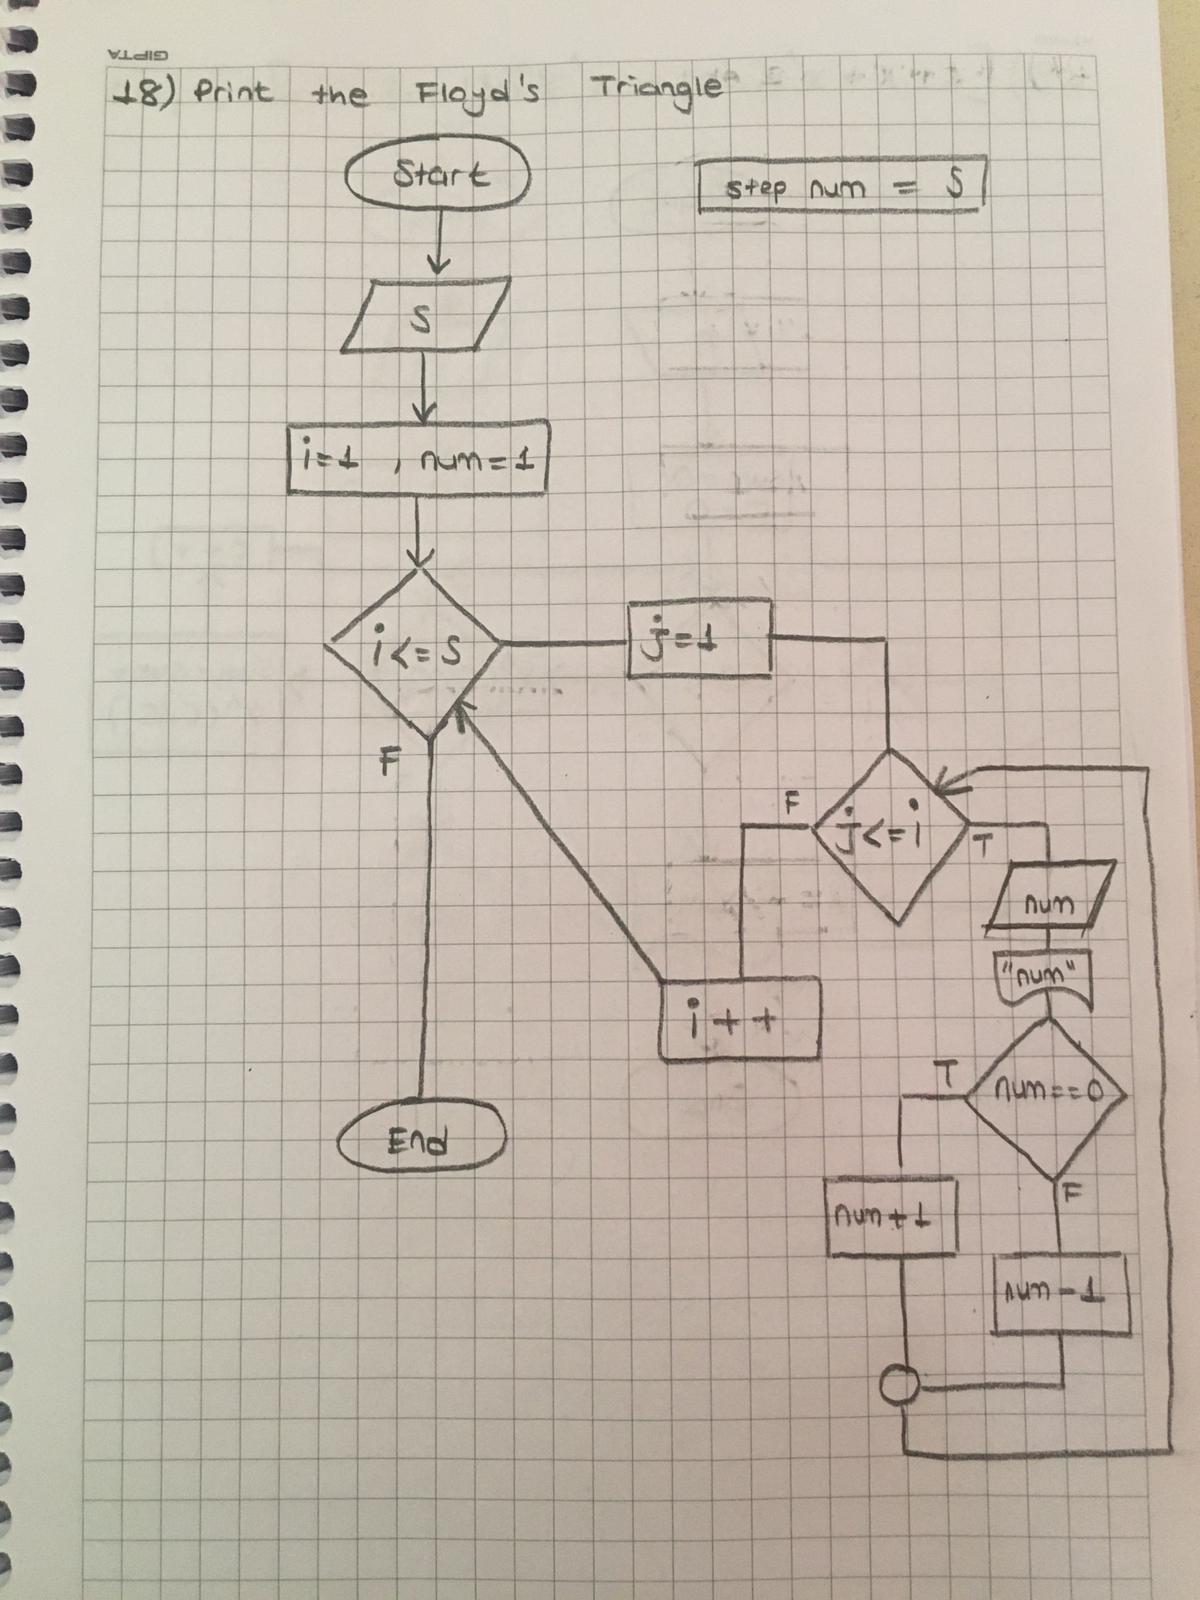 GIPTA
18) Print the Floyd's Triangle
Start
step num = S
S
i=1 , num=1
i<=S
j=1
F
F
j<=i
T
num
"num"
i++
T
num==0
End
F
num+1
num-1